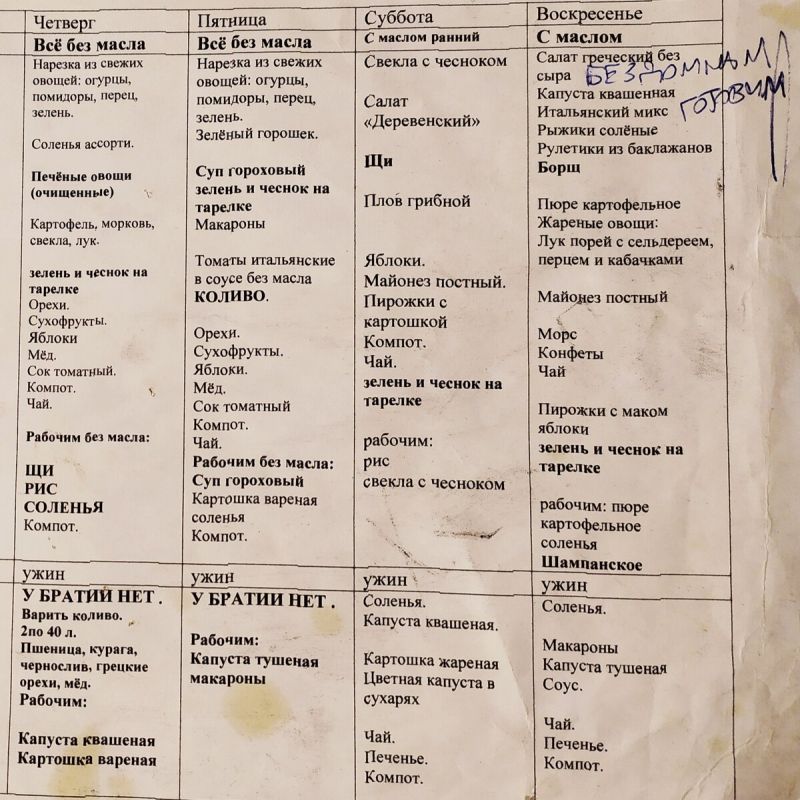 Четверг
Всё без масла
Нарезка из свежих
овощей: огурцы,
помидоры, перец,
зелень.
Соленья ассорти.
Печёные овощи
(очищенные)
Картофель, морковь,
свекла, лук.
зелень и чеснок на
тарелке
Орехи.
Сухофрукты.
Яблоки
Мёд.
Сок томатный.
Компот.
Чай.
Рабочим без масла:
ЩИ
РИС
СОЛЕНЬЯ
Компот.
ужин
У БРАТИЙ НЕТ .
Варить коливо.
2по 40 л.
Пшеница, курага,
чернослив, грецкие
орехи, мёд.
Рабочим:
Капуста квашеная
Картошка вареная
Пятница
Всё без масла
Нарезка из свежих
овощей: огурцы,
помидоры, перец,
зелень.
Зелёный горошек.
Суп гороховый
зелень и чеснок на
тарелке
Макароны
Томаты итальянские
в соусе без масла
КОЛИВО.
Орехи.
Сухофрукты.
Яблоки.
Мёд.
Сок томатный
Компот.
Чай.
Рабочим без масла:
Суп гороховый
Картошка вареная
соленья
Компот.
ужин
У БРАТИИ НЕТ .
Рабочим:
Капуста тушеная
макароны
Суббота
С маслом ранний
Свекла с чесноком
Салат
«Деревенский»
Щи
Плов грибной
Яблоки.
Майонез постный.
Пирожки с
картошкой
Компот.
Чай.
зелень и чеснок на
тарелке
рабочим:
рис
свекла с чесноком
ужин
Соленья.
Капуста квашеная.
Картошка жареная
Цветная капуста в
сухарях
Чай.
Печенье.
Компот.
Воскресенье
С маслом
Салат греческий без
сыра
БЕЗДОМНЫМ
ГОТОВИМ
Капуста квашенная
Итальянский микс
Рыжики солёные
Рулетики из баклажанов
Борщ
Пюре картофельное
Жареные овощи:
Лук порей с сельдереем,
перцем и кабачками
Майонез постный
Морс
Конфеты
Чай
Пирожки с маком
яблоки
зелень и чеснок на
тарелке
рабочим: пюре
картофельное
соленья
Шампанское
ужин
Соленья.
Макароны
Капуста тушеная
Соус.
Чай.
Печенье.
Компот.